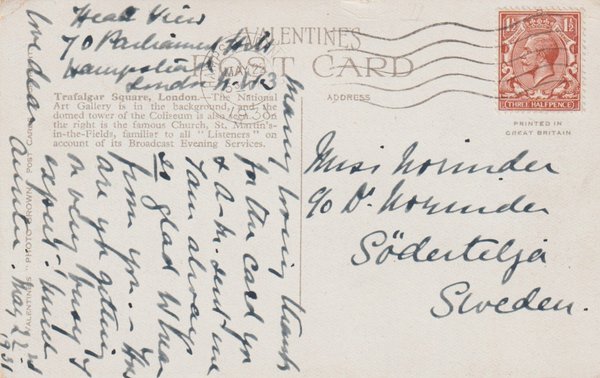 Heath View
70 Parliament Hill
Hampstead
London N.W.3
VALENTINES
POST CARD
MAY 23
ADDRESS
1½ 1½
THREE HALFPENCE
PRINTED IN
GREAT BRITAIN
Trafalgar Square, London.—The National
Art Gallery is in the background, and the
domed tower of the Coliseum is also seen. On
the right is the famous Church, St. Martin's-
in-the-Fields, familiar to all "Listeners" on
account of its Broadcast Evening Services.
Many loving thanks
for the card you
& A.M. sent me
I am always
so glad to hear
from you.
are you getting
on very busy I
expect. much
love dear
Auntie. May 22nd
1931
VALENTINE'S "PHOTO BROWN" POST CARD
Miss Norinder
c/o Dr Norinder
Södertelje
Sweden.